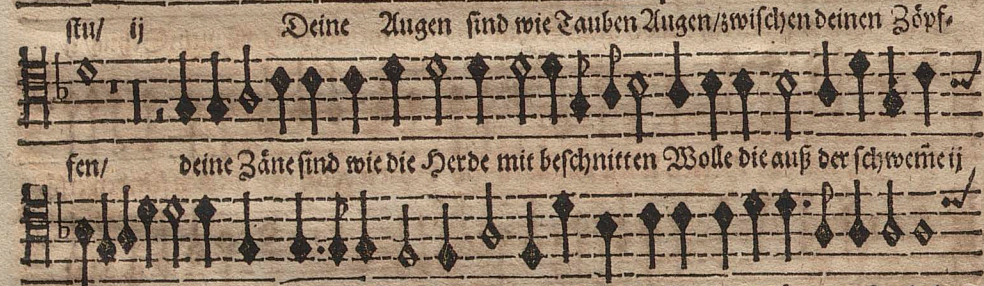 stu/ ij Deine Augen sind wie Tauben Augen/zwischen deinen Zöpf-
fen/ deine Zäne sind wie die Herde mit beschnitten Wolle die auß der schwem̃e ij